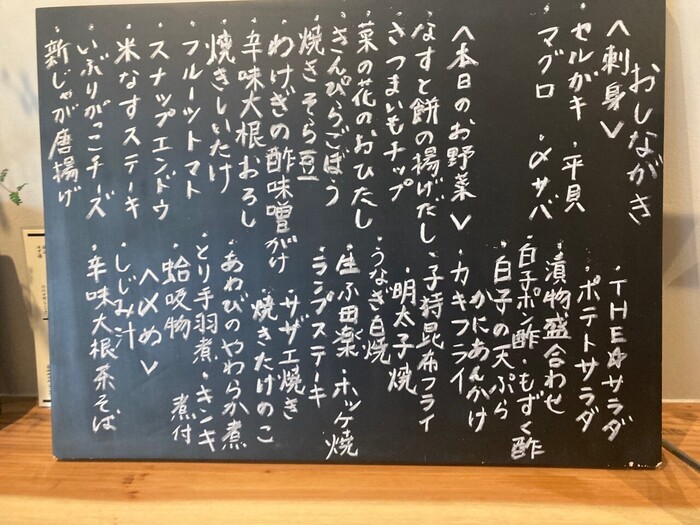 おしながき
＜刺身＞
・セルガキ ・平貝
・マグロ ・〆サバ
＜本日のお野菜＞
・なすと餅の揚げだし
・さつまいもチップ
・菜の花のおひたし
・きんぴらごぼう
・焼きそら豆
・わけぎの酢味噌がけ
・辛味大根おろし
・焼きしいたけ
・フルーツトマト
・スナップエンドウ
・米なすステーキ
・いぶりがっこチーズ
・新じゃが唐揚げ
・THE☆サラダ
・ポテトサラダ
・漬物盛合わせ
・白子ポン酢・もずく酢
・白子の天ぷら
かにあんかけ
・カキフライ
・子持昆布フライ
・明太子焼
・うなぎ白焼
・生ふ田楽・ホッケ焼
・ランプステーキ
・サザエ焼き
・焼きたけのこ
・あわびのやわらか煮
・とり手羽煮・キンキ煮付
・蛤吸物
＜〆め＞
・しじみ汁
・辛味大根茶そば